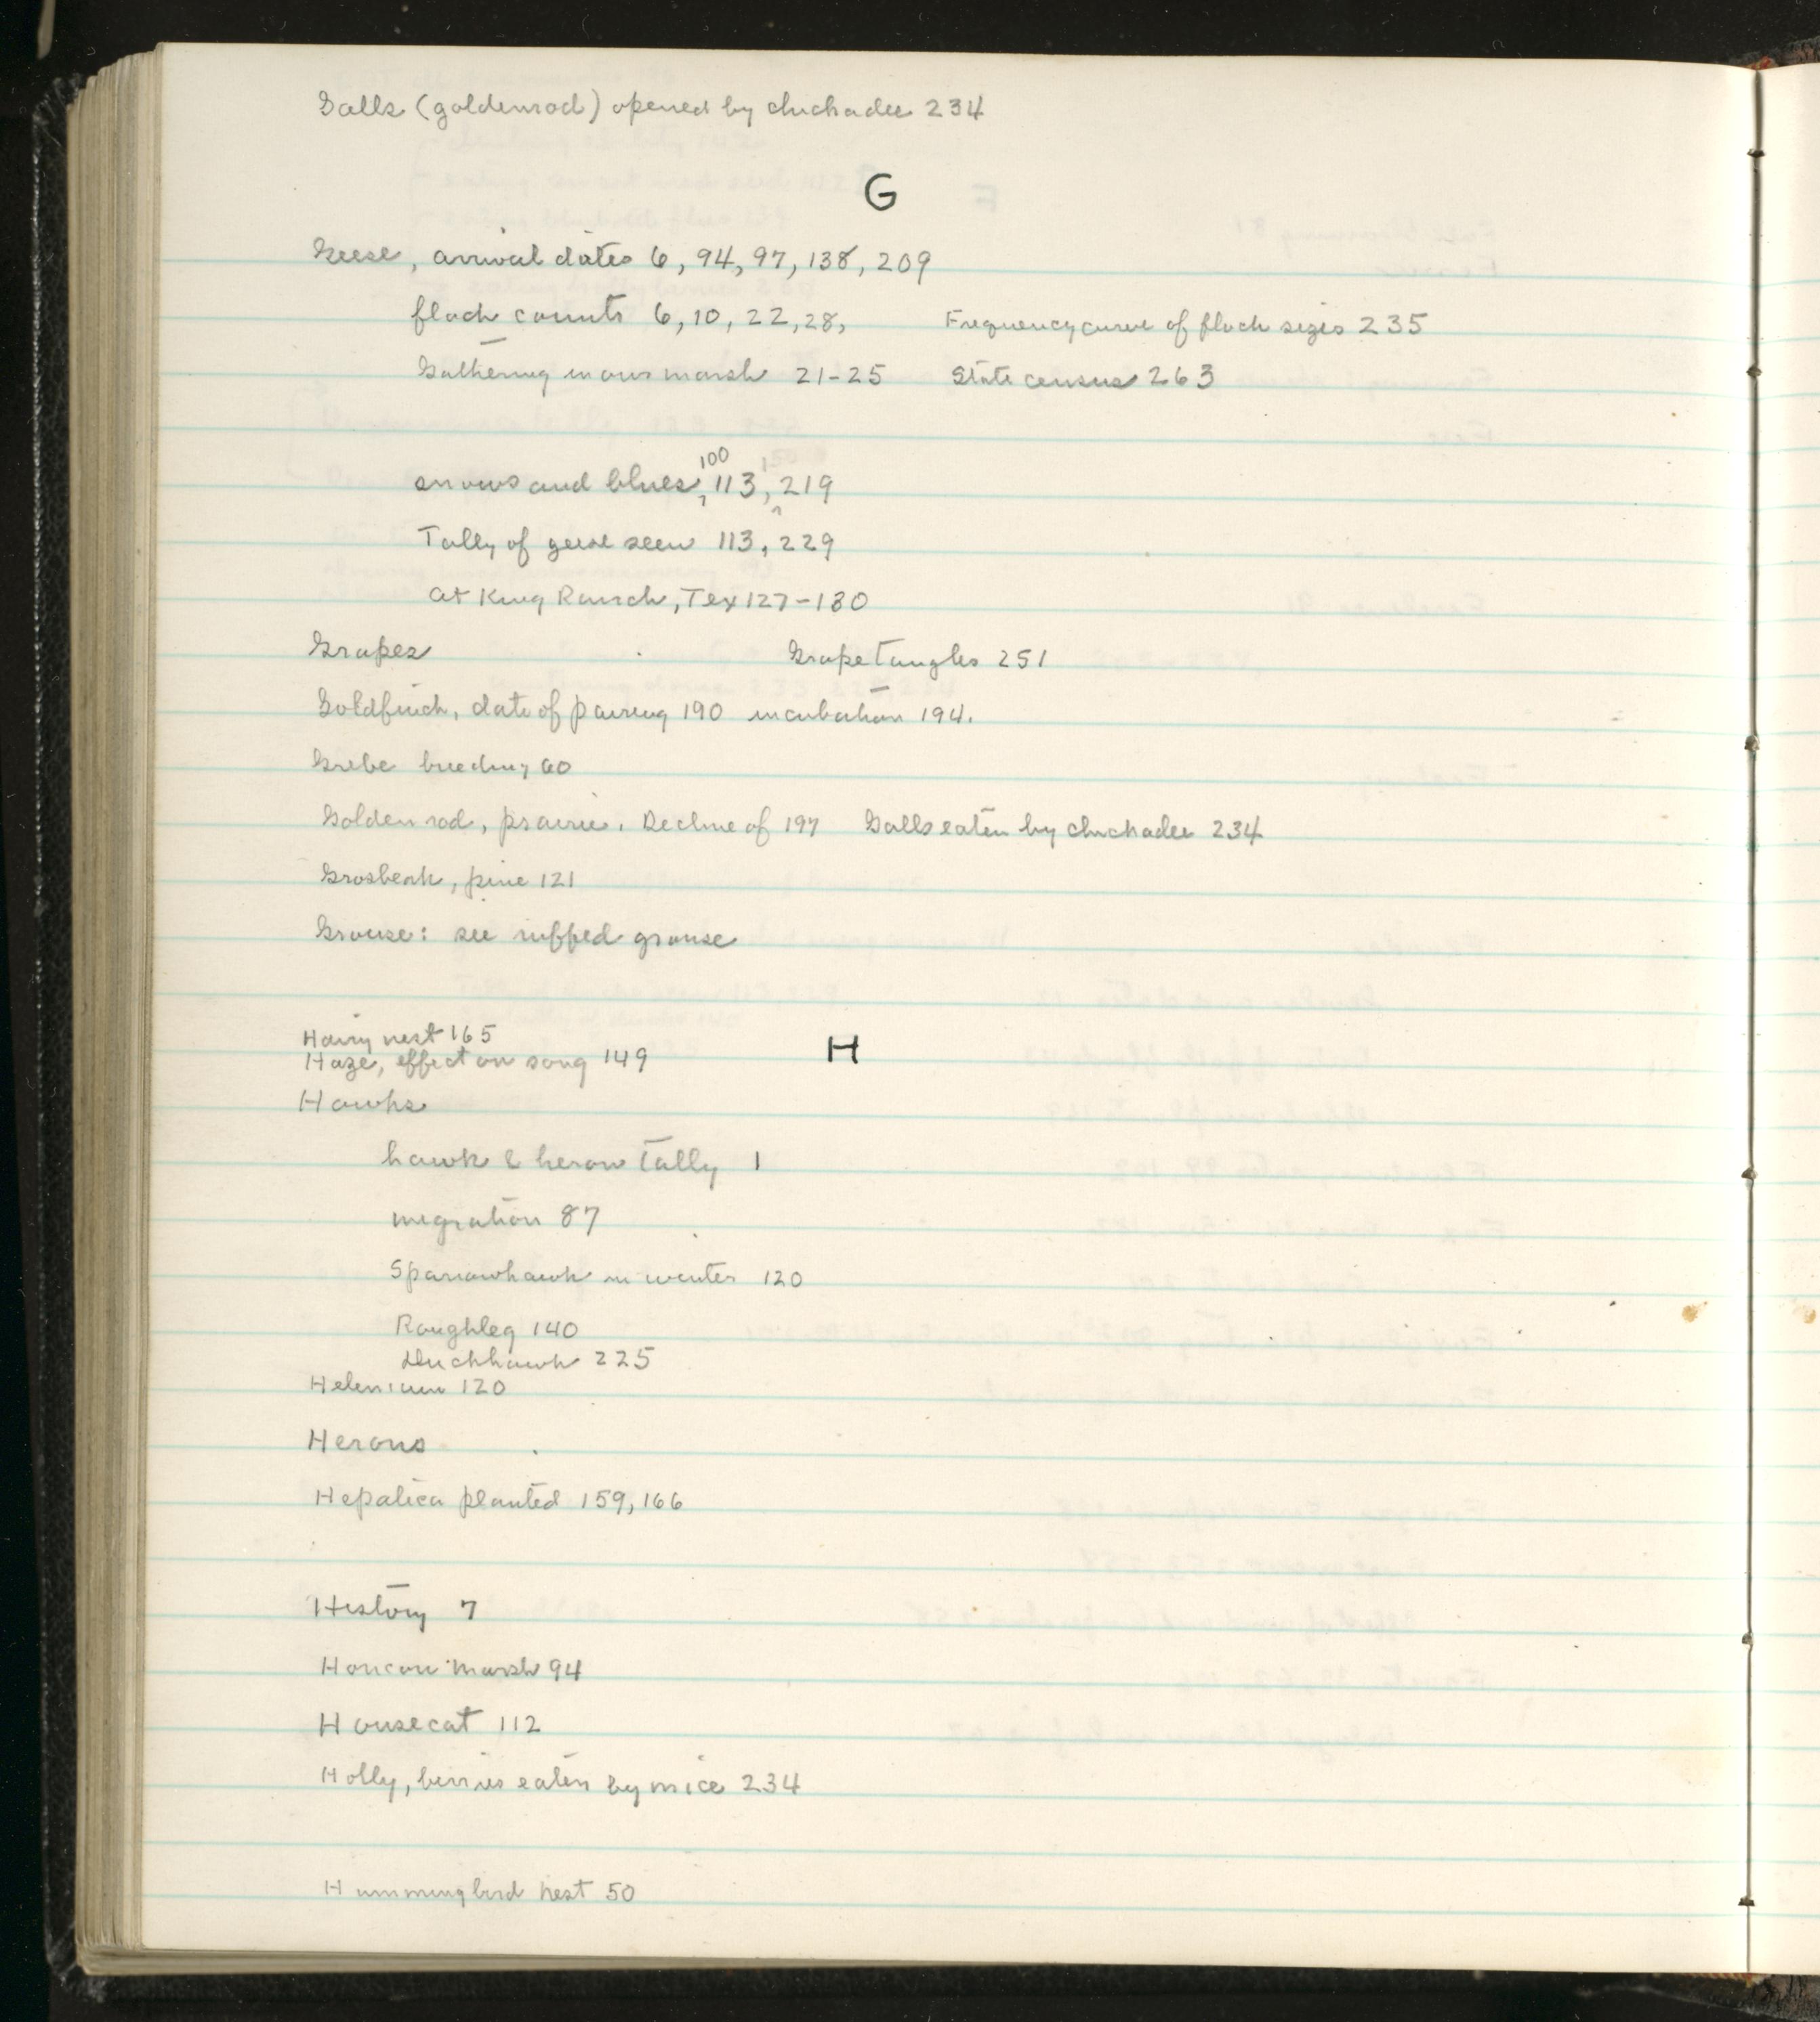 Galls (goldenrod) opened by chickadee 234
G
Geese, arrival dates 6, 94, 97, 138, 209
flock counts 6, 10, 22, 28, Frequency curve of flock sizes 235
Gathering in our marsh 21-25 State census 263
snows and blues, 100 113, 150 219
Tally of geese seen 113, 229
at King Ranch, Tex 127-130
Grapes Grape Tangles 251
Goldfinch, date of pairing 190 incubation 194.
Grebe breeding 60
Golden rod, prairie. Decline of 197 Galls eaten by chickadee 234
Grosbeak, pine 121
Grouse: see ruffed grouse
Hairy nest 165
H
Haze, effect on song 149
Hawks
hawk & heron Tally 1
migration 87
Sparrowhawk in winter 120
Roughleg 140
Duckhawk 225
Helenium 120
Herons
Hepatica planted 159, 166
History 7
Horicon Marsh 94
Housecat 112
Holly, berries eaten by mice 234
Hummingbird nest 50